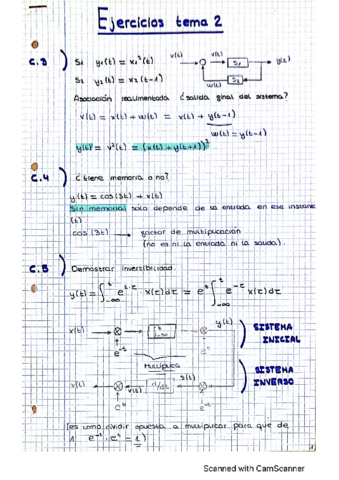 Ejercicios tema 2
C.3) S1 y1(t) = x1²(t)
S2 y2(t) = x2(t-1)
x(t) v(t) S1 y(t)
S2
w(t)
Asociación realimentada ¿salida final del sistema?
v(t) = x(t) + w(t) = x(t) + y(t-1)
w(t) = y(t-1)
y(t) = v²(t) = (x(t) + y(t+1))²
C.4) ¿tiene memoria o no?
y(t) = cos(3t) + x(t)
Sin memoria, solo depende de la entrada en ese instante
(t)
cos(3t) → factor de multiplicación
(no es ni la entrada ni la salida).
C.5) Demostrar invertibilidad.
y(t) = ∫_{-∞}^{t} e^{t-τ} · x(τ)dτ = e^t ∫_{-∞}^{t} e^{-τ} x(τ)dτ
x(t) ⊗ ∫ ⊗ y(t)
e^{-t}
SISTEMA INICIAL
Multiplica
x(t) ⊗ v(t) d/dt z(t) ⊗
e^t e^{-t}
SISTEMA INVERSO
(es como dividir opuesta a multiplicar para que de
1 e^{-t} · e^t = 1)
Scanned with CamScanner